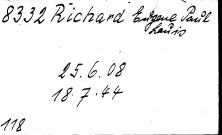 8332 Richard Eugene Paul
Louis
25.6.08
18.7.44
118